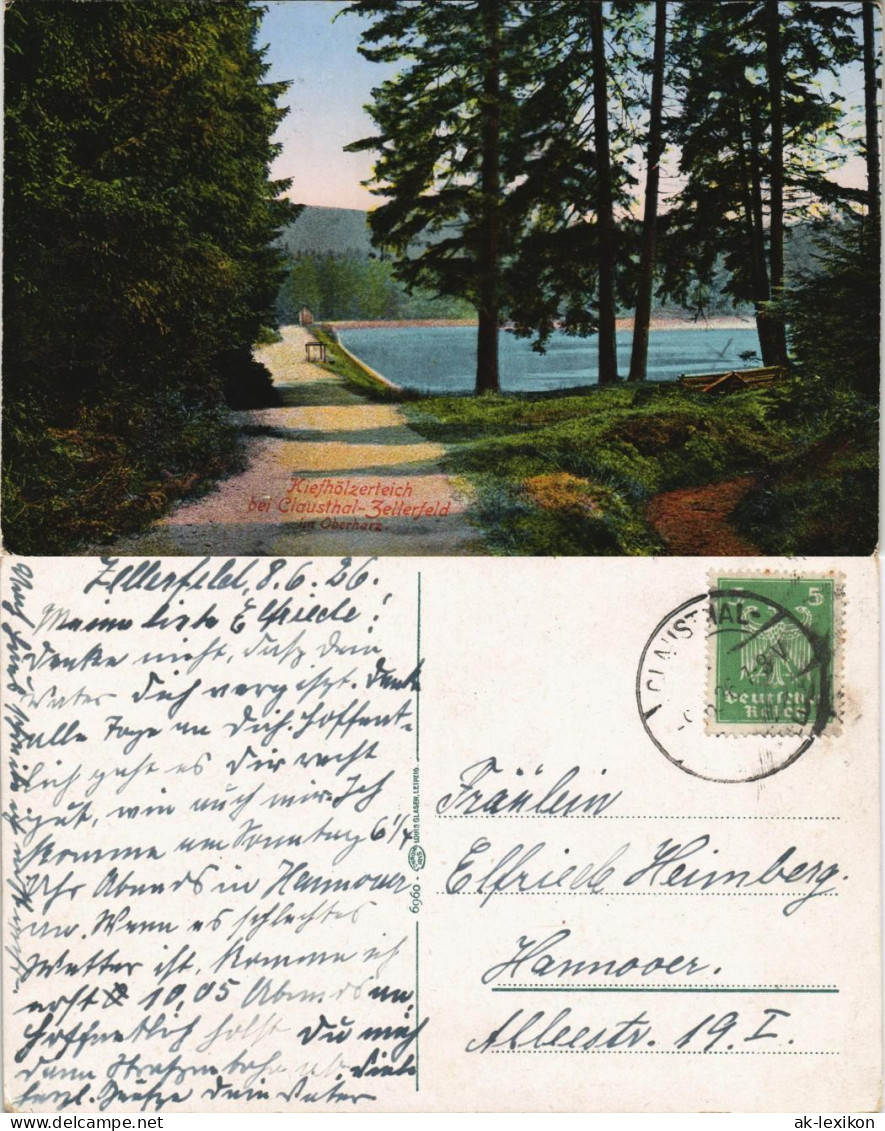 Kiefhölzerteich
bei Clausthal-Zellerfeld
im Oberharz.
Zellerfeld, 8.6.26.
Meine liebe Elfriede!
Denke nicht, dass dein
Vater dich vergisst. Denke
alle Tage an dich. Hoffent-
lich geht es dir recht
gut, wie auch mir. Ich
komme am Sonntag 6 1/4
Uhr Abends in Hannover
an. Wenn es schlechtes
Wetter ist, komme ich
erst 10,05 Abends an,
hoffentlich holst Du mich
dann Strassenbahn ab. Viele
herzl. Grüsse dein Vater
6960
LOUIS GLASER, LEIPZIG
CLAUSTHAL-
5
Deutsches
Reich
Fräulein
Elfriede Heimberg.
Hannover.
Alleestr. 19. I.
ak-lexikon